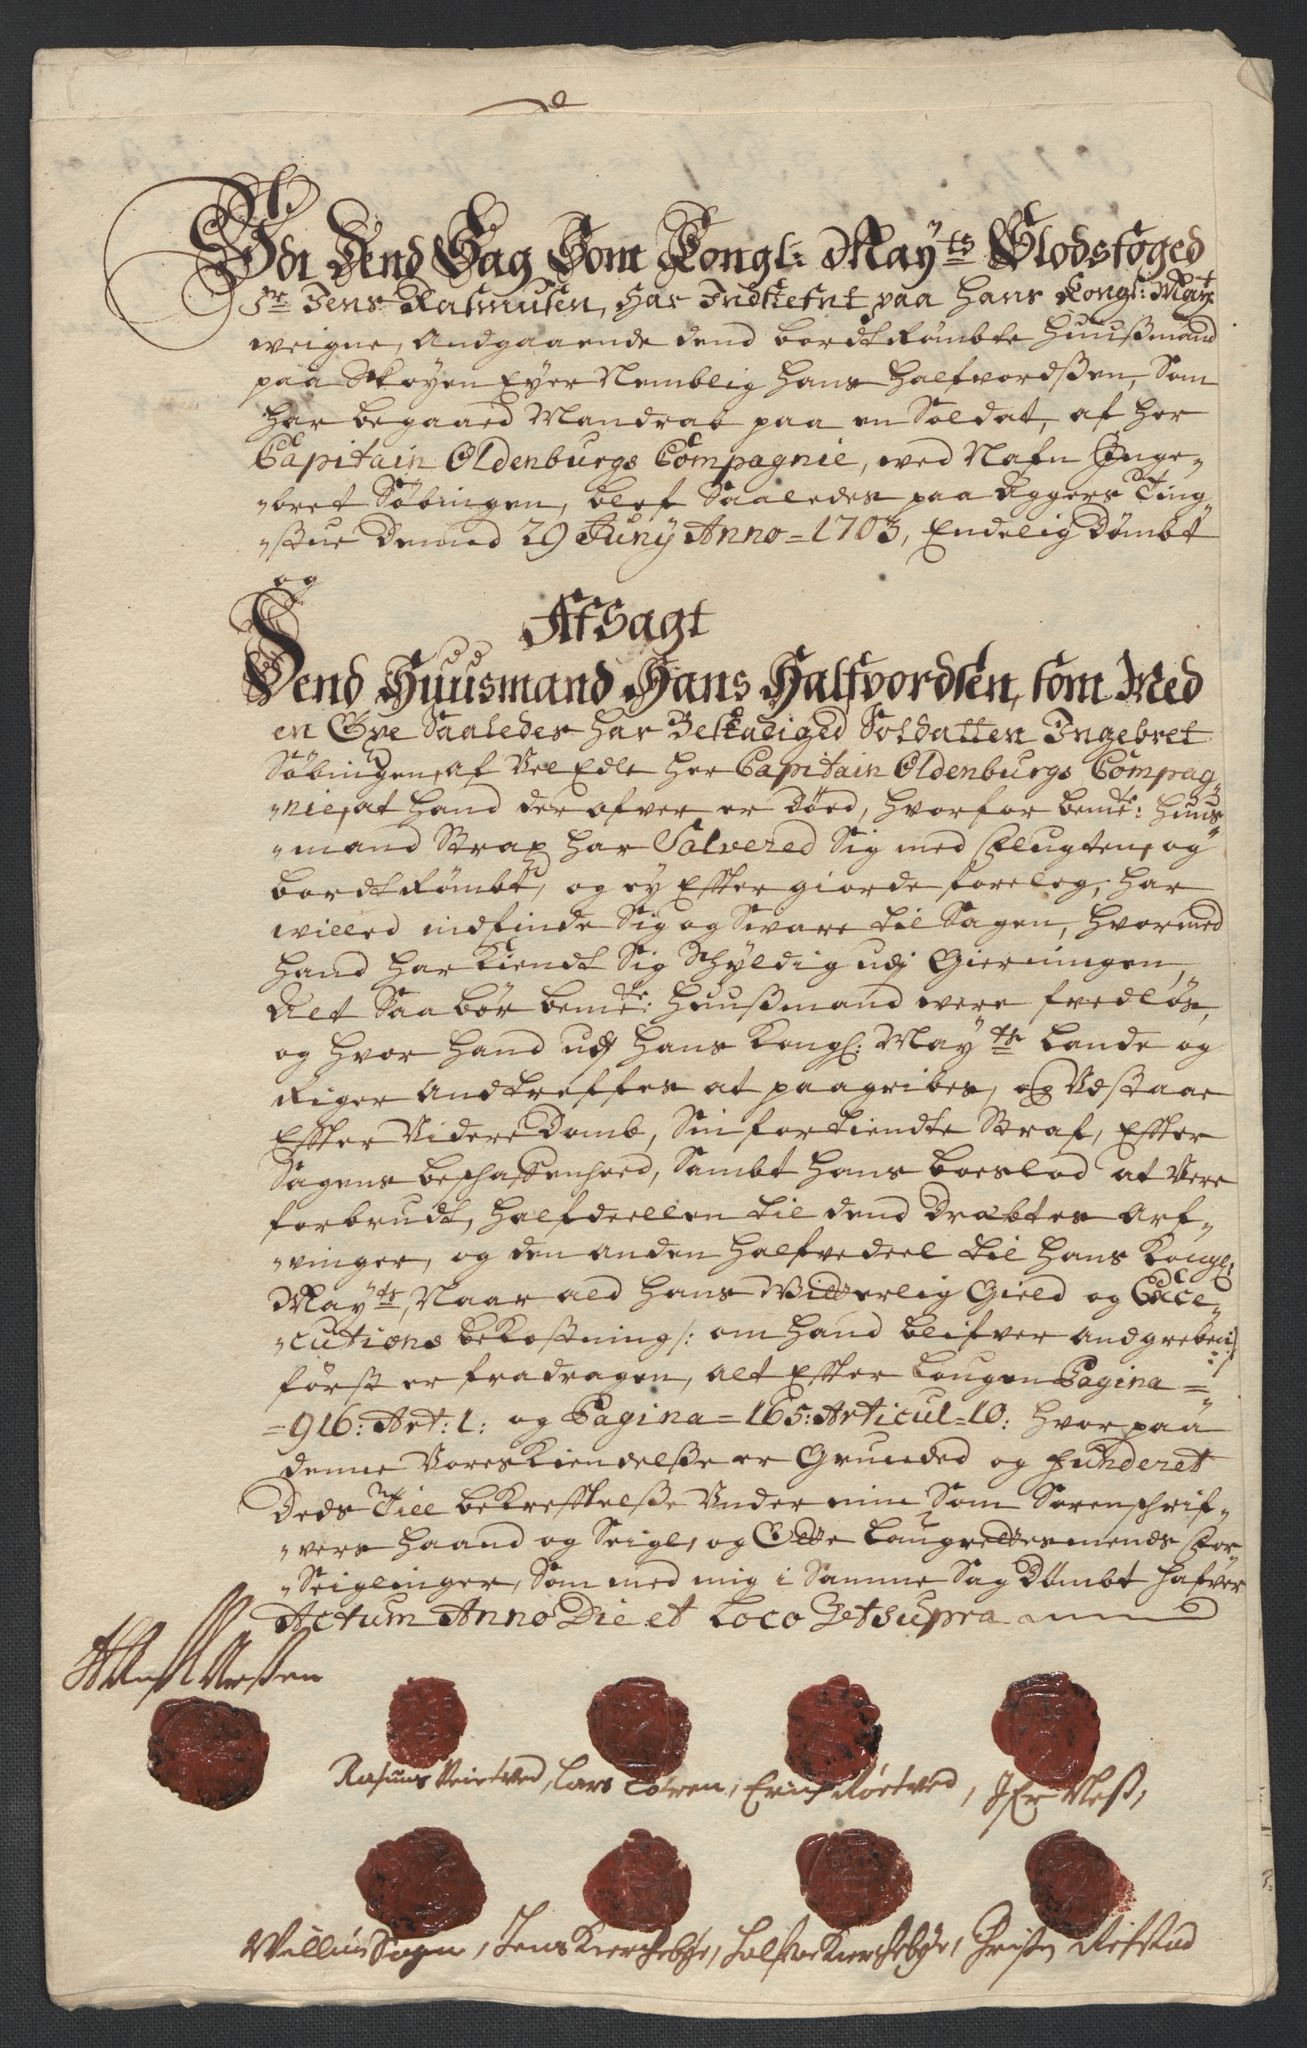 Udi Dend Sag Som Kongl: Mayts Slodsfoged
Sr Jens Rasmusen, har Indstefnt paa hans Kongl: Mayts
weigne, Andgaaende dend bordtRømbte Huußmand
paa Skøyen Eyer Nemblig Hans Halfvordßen, Som
har begaaed Mandrab paa en Soldat, af her
Capitain Oldenburgs Compagnie, ved Nafn Inge-
-bret Søbingen, blef Saaledes paa Aggers Ting-
-stue Dennd 29 Juny Anno = 1703, Endelig Dømbt
og
AfSagt
Dend Huusmand Hans Halfvordsen, som Med
en Øxe Saaledes har Beskadiged Soldatten Ingebret
Søbingen, af Vel Edle her Capitain Oldenburgs Compag-
-nie, at hand der ofver er døed, hvorfor bemte: Huus-
-mand Strax har Salvered Sig med Flugten, og
bordtRømbt, og ey Effter giorde foreleg, har
willed indfinde Sig og Sware til Sagen, hvormed
hand har Kiendt Sig Schyldig udj Gierningen,
Alt Saa bør bemte: Huußmand were fredløs,
og hvor hand udj hans Kongl: Mayts Lande og
Riger Andtreffes at paagribes, og Udstaae
Effter Videre Domb, Sin fortiendte Straf, Effter
Sagens beschaffenhed, Sambt hans boeslod at Vere
forbrudt, halfdeellen til dend Dræbtes Arf-
-vinger, og den anden halfvedeel til Hans Kongl:
Mayts, Naar ald hans Witterlig Gield og Exe-
-cutions bekostning /: om hand blifver andgreben :/
først er fradragen, alt Effter Lougen Pagina =
= 916: Art: 1: og Pagina = 165: Articul = 10: hvor paa
denne Vores Kiendelße er Grunded og funderet
Deds Till bekrefftelße Under min Som Sorenschrif-
-vers haand og Seigl, og Otte Laugrettesmends For-
-Seiglinger, Som med mig i Samme Sag Dømbt hafver
Actum Anno Die et Loco Vtsupra
Rasmus Veitved, Lars Toren, Erich Røetved, Iver Neß,
Willum Sogn, Jens Kierchebye, Halfvor Kierchebye, Christen Refstad